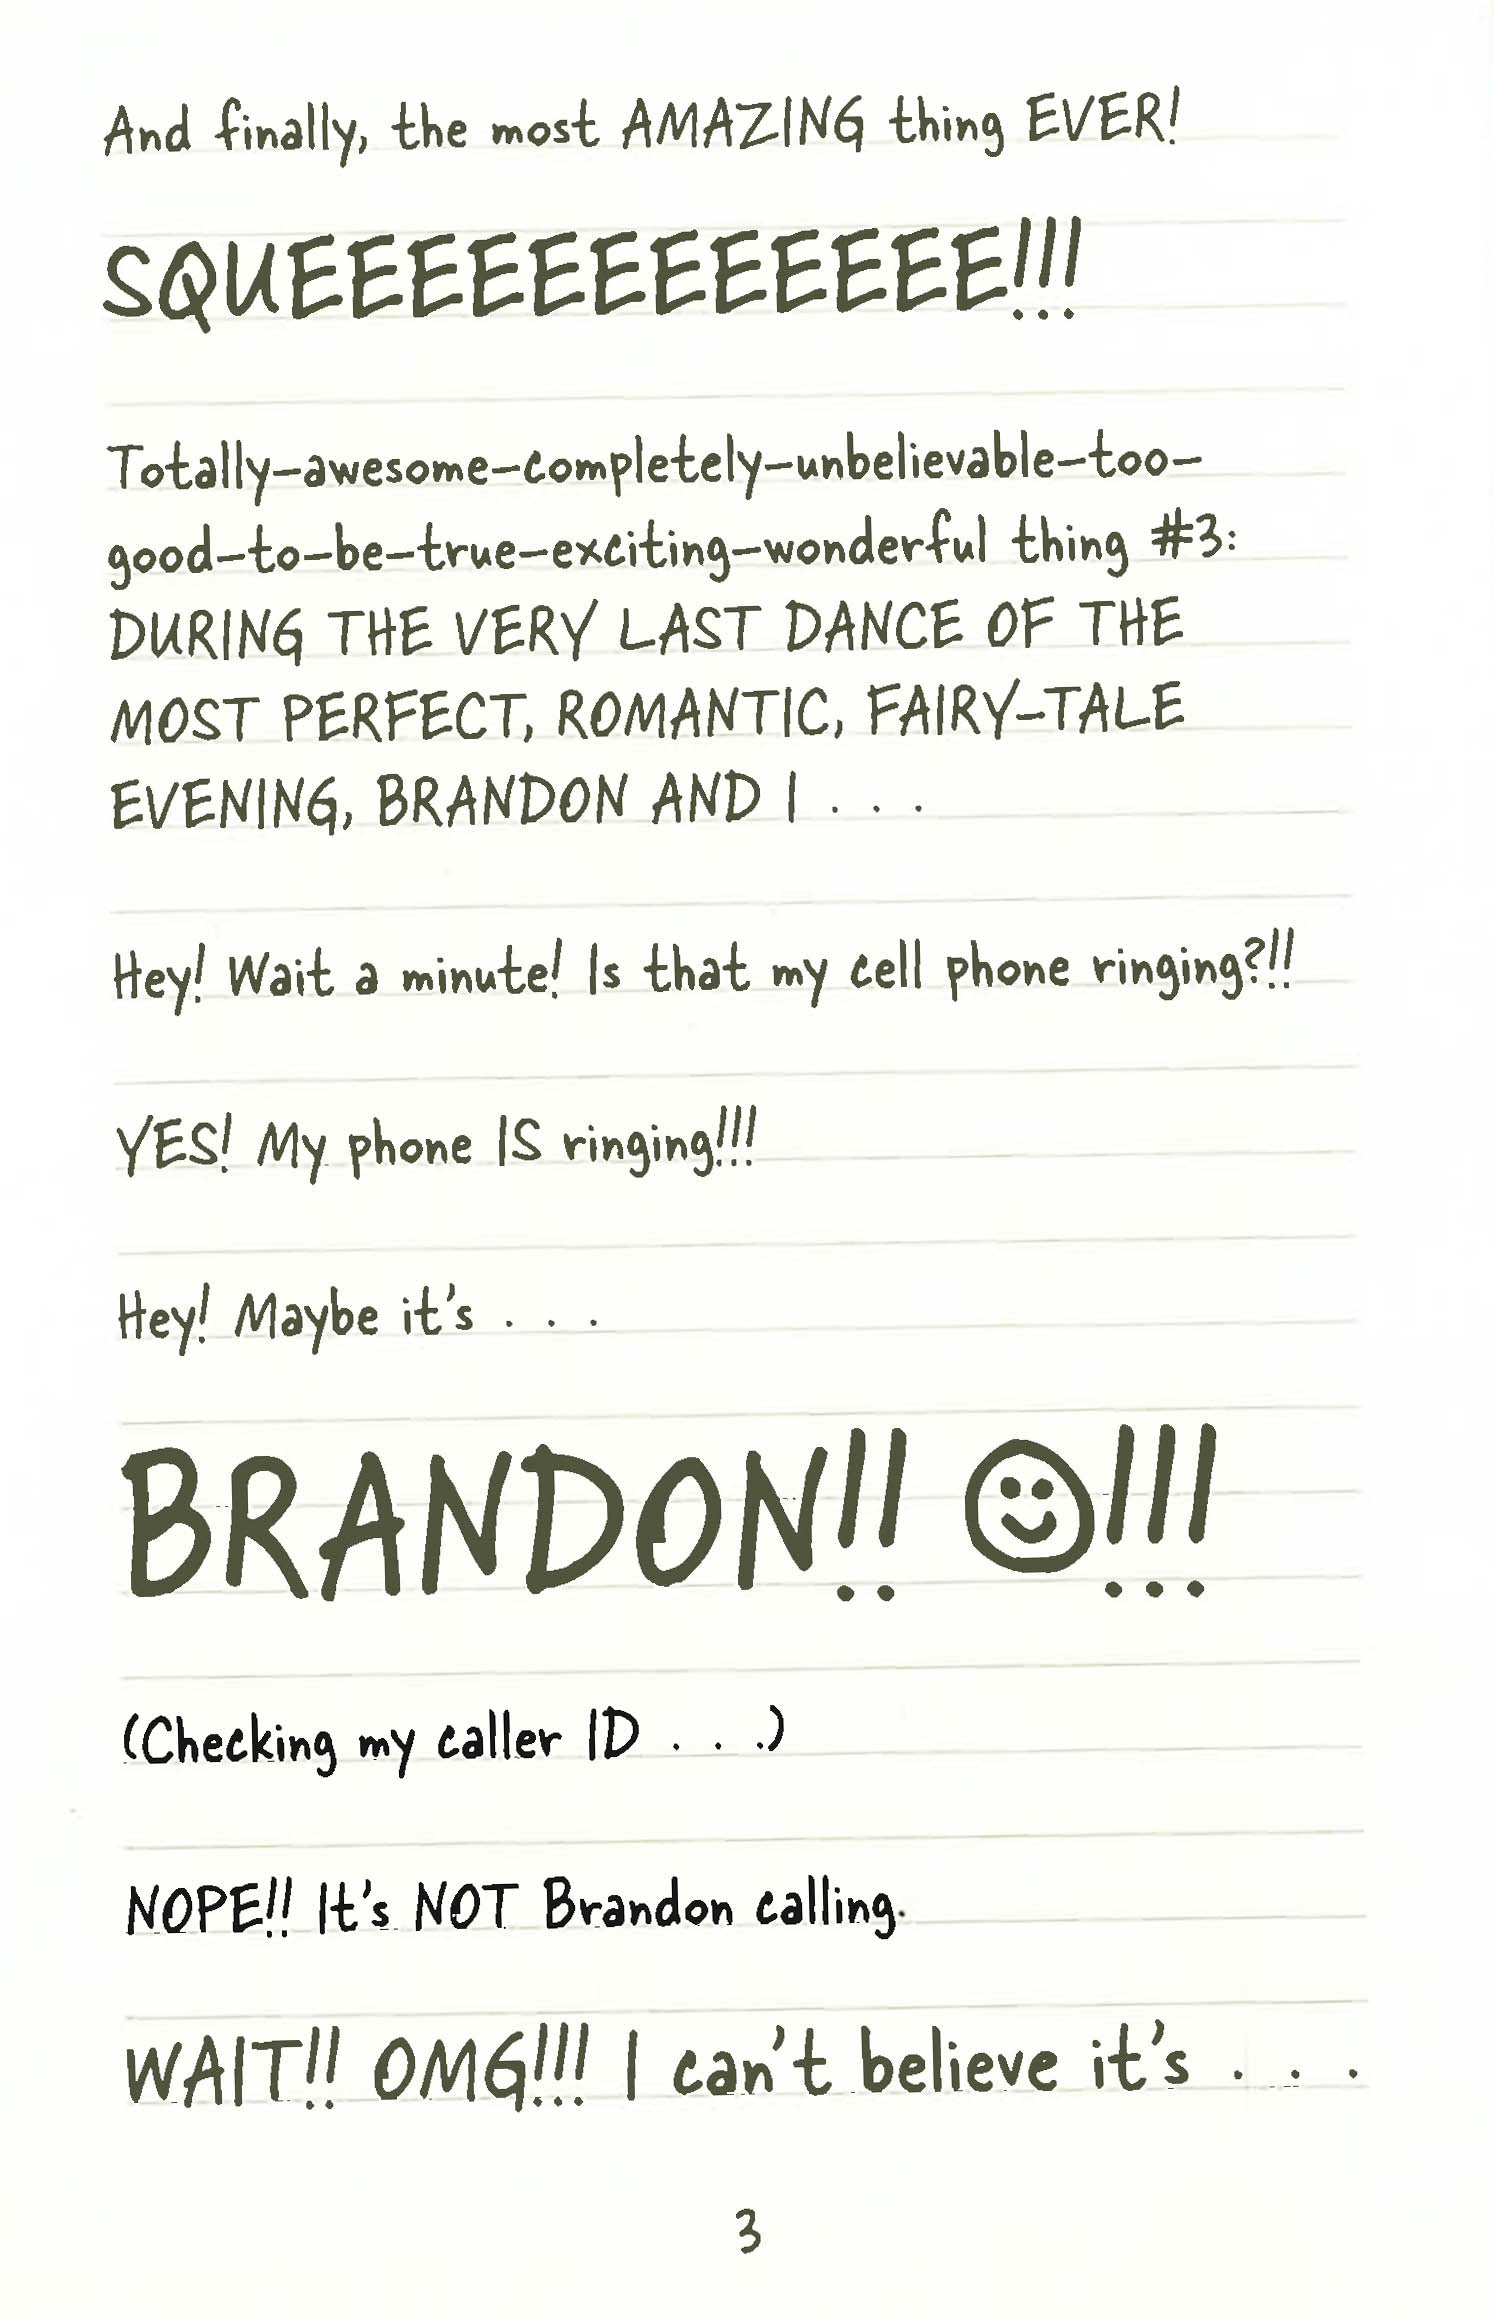 And finally, the most AMAZING thing EVER!
SQUEEEEEEEEEEEE!!!
Totally-awesome-completely-unbelievable-too-
good-to-be-true-exciting-wonderful thing #3:
DURING THE VERY LAST DANCE OF THE
MOST PERFECT, ROMANTIC, FAIRY-TALE
EVENING, BRANDON AND I . . .
Hey! Wait a minute! Is that my cell phone ringing?!!
YES! My phone IS ringing!!!
Hey! Maybe it's . . .
BRANDON!! ☺!!!
(Checking my caller ID . . .)
NOPE!! It's NOT Brandon calling.
WAIT!! OMG!!! I can't believe it's . . .
3